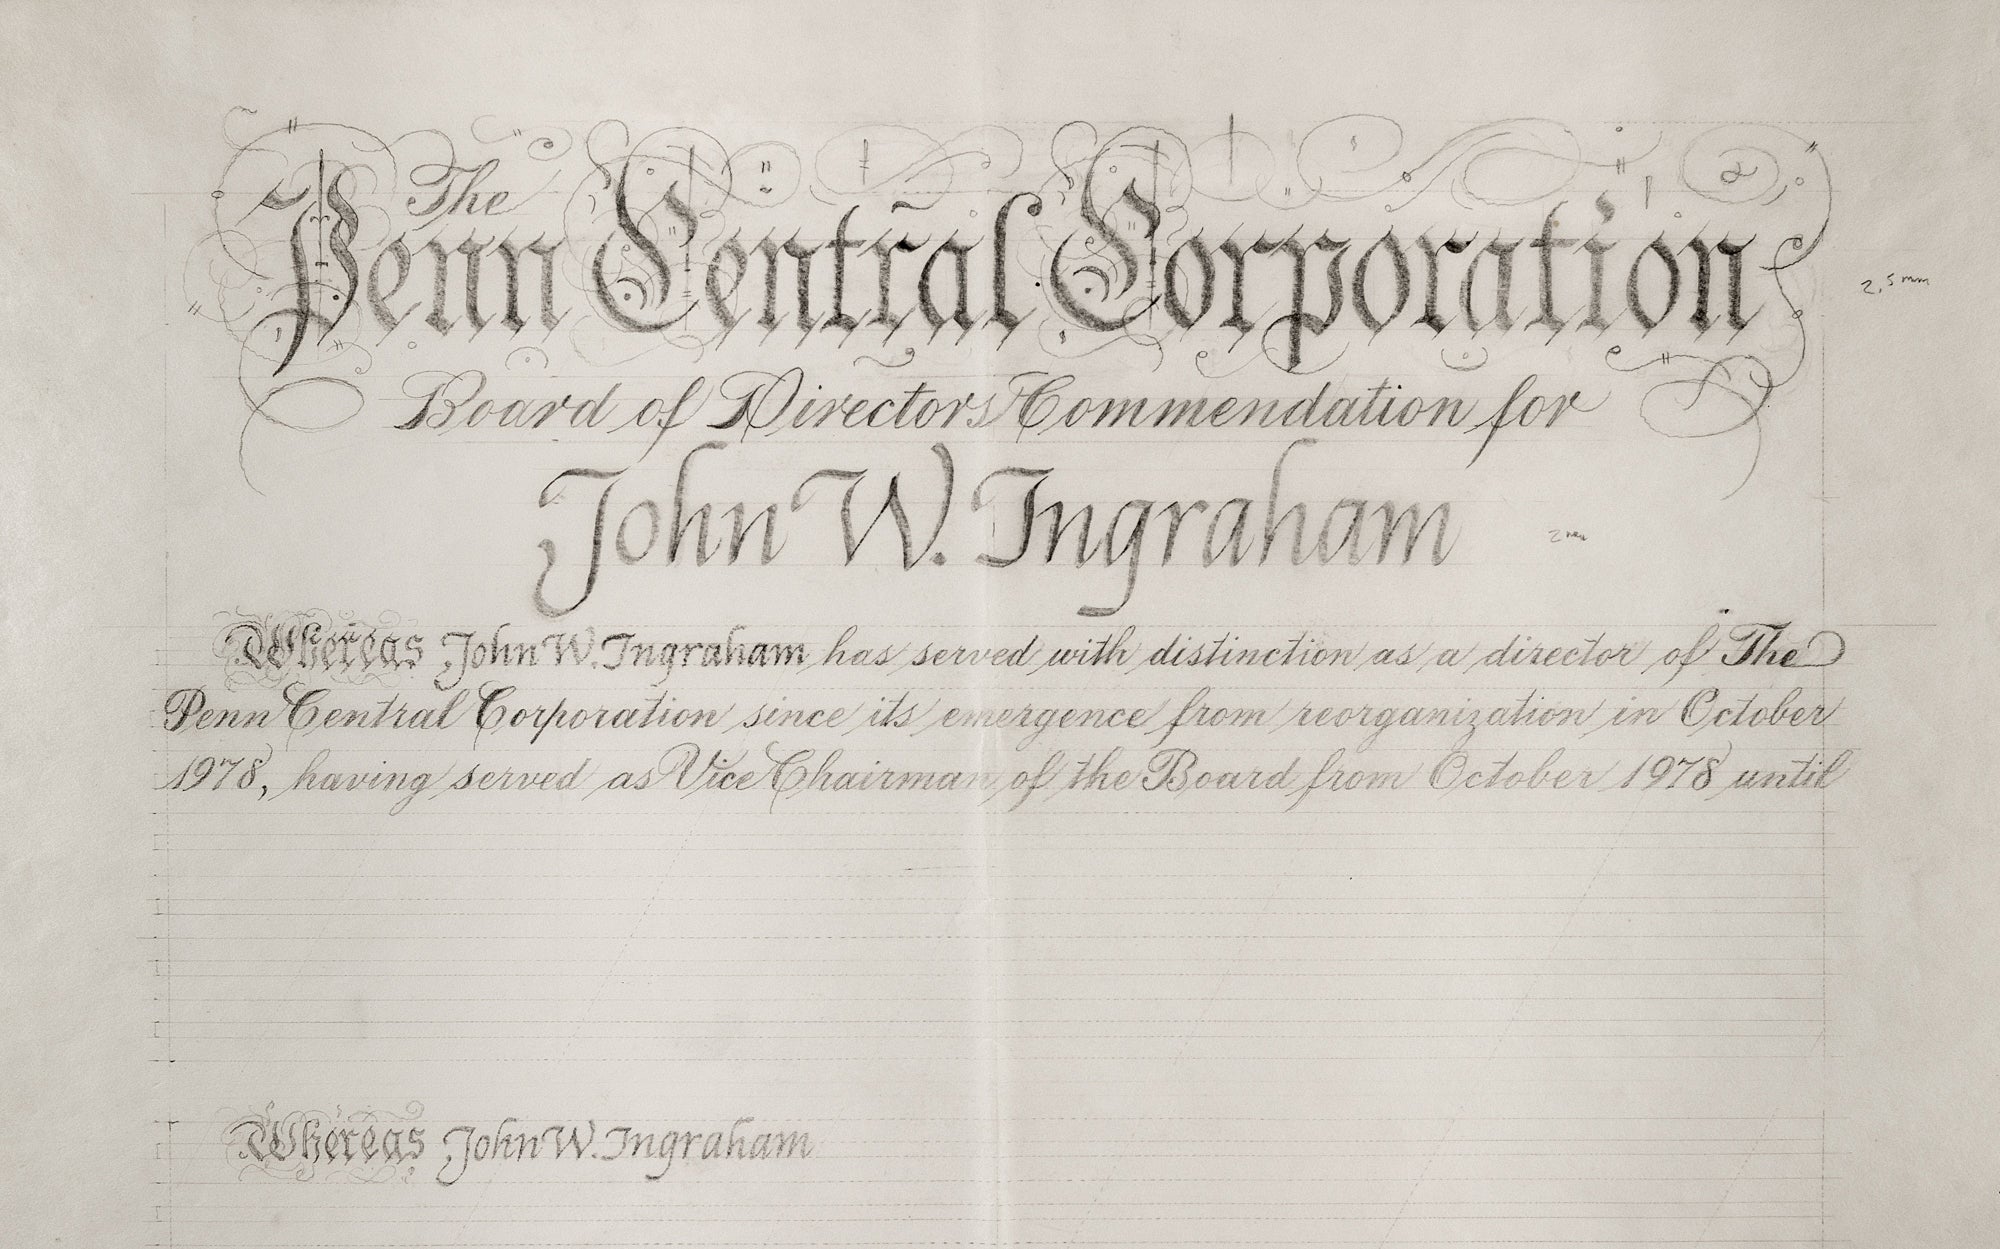 The
Penn Central Corporation
2.5 mm
Board of Directors Commendation for
John W. Ingraham
2 mm
Whereas John W. Ingraham has served with distinction as a director of The
Penn Central Corporation since its emergence from reorganization in October
1978, having served as Vice Chairman of the Board from October 1978 until
Whereas John W. Ingraham